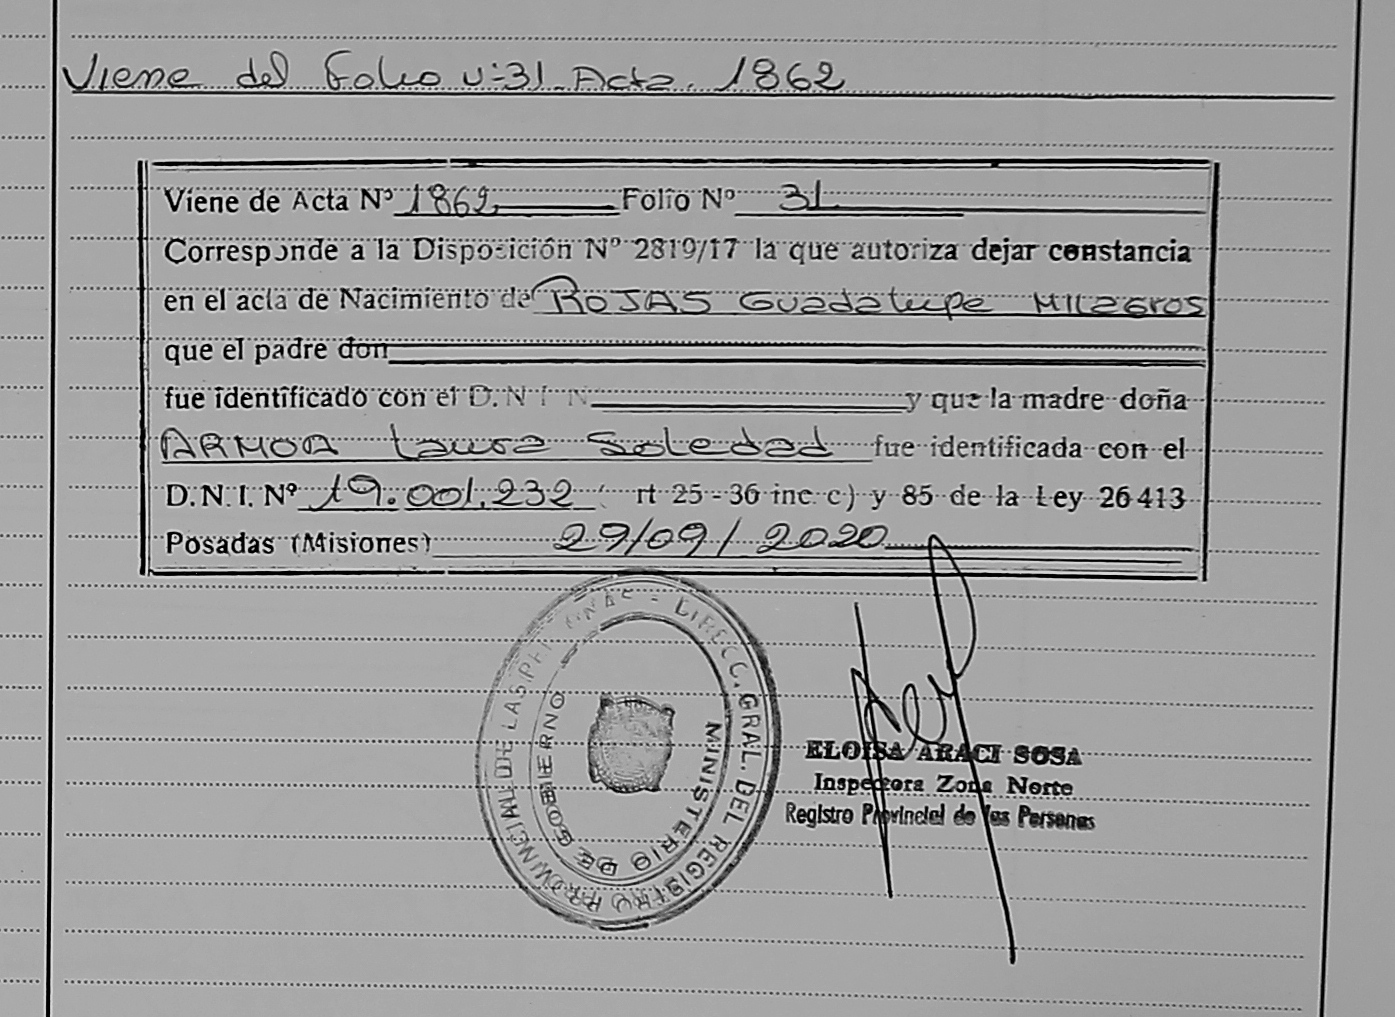 Viene del Folio Nº 31. Acta. 1862
Viene de Acta Nº 1862 Folio Nº 31
Corresponde a la Disposición Nº 2819/17 la que autoriza dejar constancia
en el acta de Nacimiento de ROJAS Guadalupe Milagros
que el padre don
fue identificado con el D.N.I N y que la madre doña
ARMOA Laura Soledad fue identificada con el
D.N.I. Nº 19.001.232 ( rt 25-36 inc c) y 85 de la Ley 26413
Posadas (Misiones) 29/09/2020
DIRECC. GRAL. DEL REGISTRO PROVINCIAL DE LAS PERSONAS
MINISTERIO DE GOBIERNO
ELOISA ARACI SOSA
Inspectora Zona Norte
Registro Provincial de las Personas